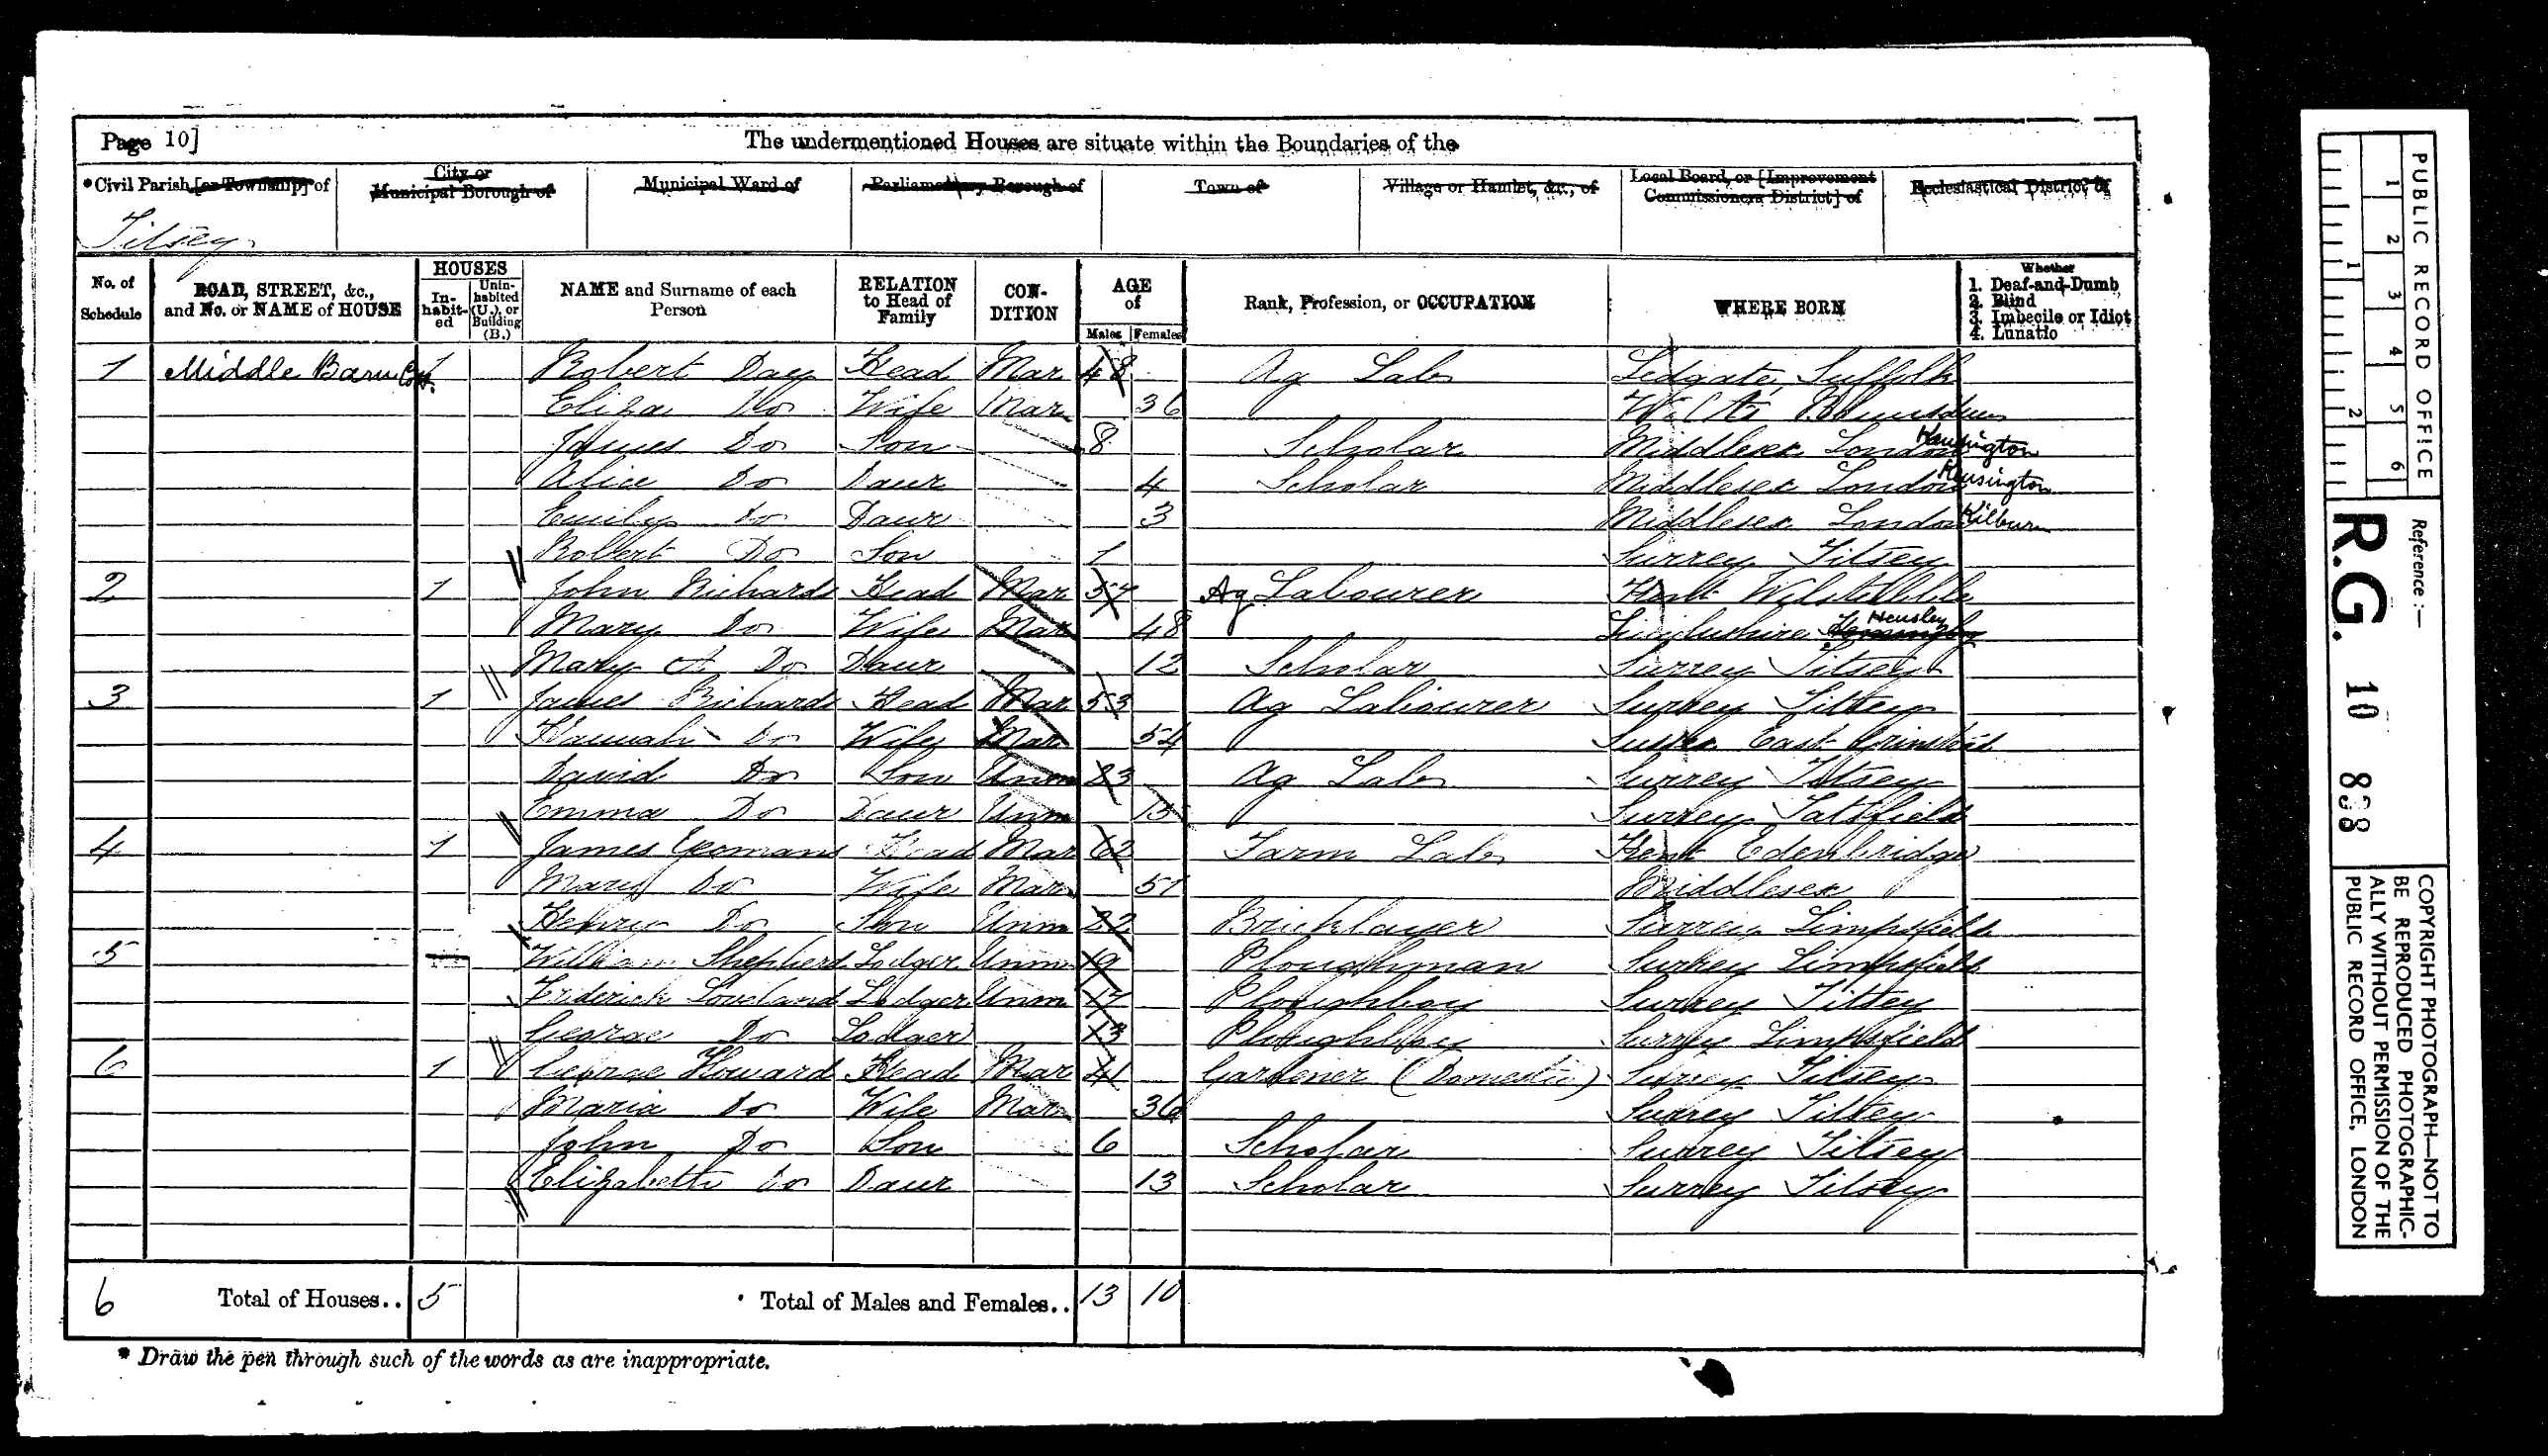 Page 10]
The undermentioned Houses are situate within the Boundaries of the
*Civil Parish [or Township] of
City or Municipal Borough of
Municipal Ward of
Parliamentary Borough of
Town of
Village or Hamlet, &c., of
Local Board, or [Improvement Commissioners District] of
Ecclesiastical District of
Titsey
No. of Schedule
ROAD, STREET, &c., and No. or NAME of HOUSE
HOUSES
In-habit-ed
Unin-habited (U.), or Building (B.)
NAME and Surname of each Person
RELATION to Head of Family
CON-DITION
AGE of
Males
Females
Rank, Profession, or OCCUPATION
WHERE BORN
Whether
1. Deaf-and-Dumb
2. Blind
3. Imbecile or Idiot
4. Lunatic
1 Middle Barn Cott. 1 Robert Day Head Mar 48 Ag Lab Lidgate Suffolk
Eliza Do Wife Mar 36
James Do Son 8 Scholar Middlesex London Kensington
Alice Do Daur 4 Scholar Middlesex London Kensington
Emily Do Daur 3 Middlesex London Kilburn
Robert Do Son 1 Surrey Titsey
2 1 John Richards Head Mar 57 Ag Labourer
Mary Do Wife Mar 48 Hensley
Mary A Do Daur 12 Scholar Surrey Titsey
3 1 James Richards Head Mar 53 Ag Labourer Surrey Titsey
Hannah Do Wife Mar 54 Sussex East Grinstead
David Do Son Unm 23 Ag Lab Surrey Titsey
Emma Do Daur Unm 15 Surrey Tatsfield
4 1 James Yeomans Head Mar 62 Farm Lab Kent Edenbridge
Mary Do Wife Mar 51 Middlesex
Henry Do Son Unm 22 Bricklayer Surrey Limpsfield
5 William Shepherd Lodger Unm 19 Ploughman Surrey Limpsfield
Frederick Loveland Lodger Unm 17 Ploughboy Surrey Titsey
George Do Lodger 13 Ploughboy Surrey Limpsfield
6 1 George Howard Head Mar 41 Gardener (Domestic) Surrey Titsey
Maria Do Wife Mar 36 Surrey Titsey
John Do Son 6 Scholar Surrey Titsey
Elizabeth Do Daur 13 Scholar Surrey Titsey
6 Total of Houses.. 5 Total of Males and Females.. 13 10
* Draw the pen through such of the words as are inappropriate.
PUBLIC RECORD OFFICE
1 2 3 4 5 6
1 2
Reference :—
R.G. 10 838
COPYRIGHT PHOTOGRAPH—NOT TO
BE REPRODUCED PHOTOGRAPHIC-
ALLY WITHOUT PERMISSION OF THE
PUBLIC RECORD OFFICE, LONDON